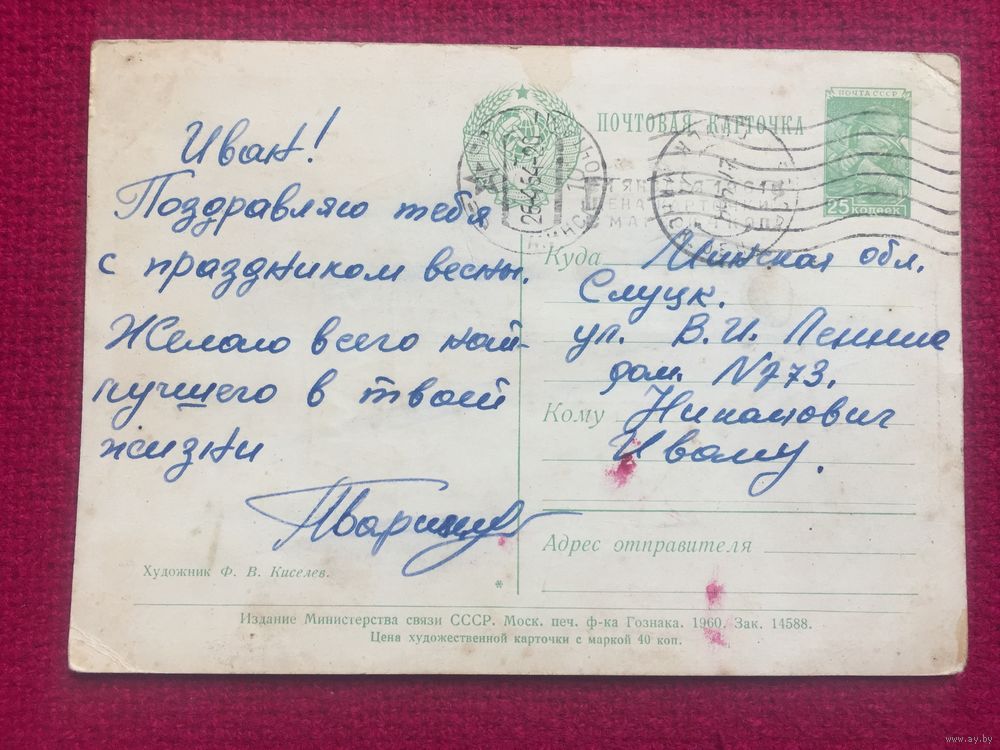 Иван!
Поздравляю тебя
с праздником весны.
Желаю всего най-
лучшего в твоей
жизни
Художник Ф. В. Киселев.
ПОЧТОВАЯ КАРТОЧКА
ПОЧТА СССР
25 КОПЕЕК
Куда Минская обл.
Слуцк.
ул. В. И. Ленина
дом. №273.
Кому
Ивану.
Адрес отправителя
*
Издание Министерства связи СССР. Моск. печ. ф-ка Гознака. 1960. Зак. 14588.
Цена художественной карточки с маркой 40 коп.
www.ay.by